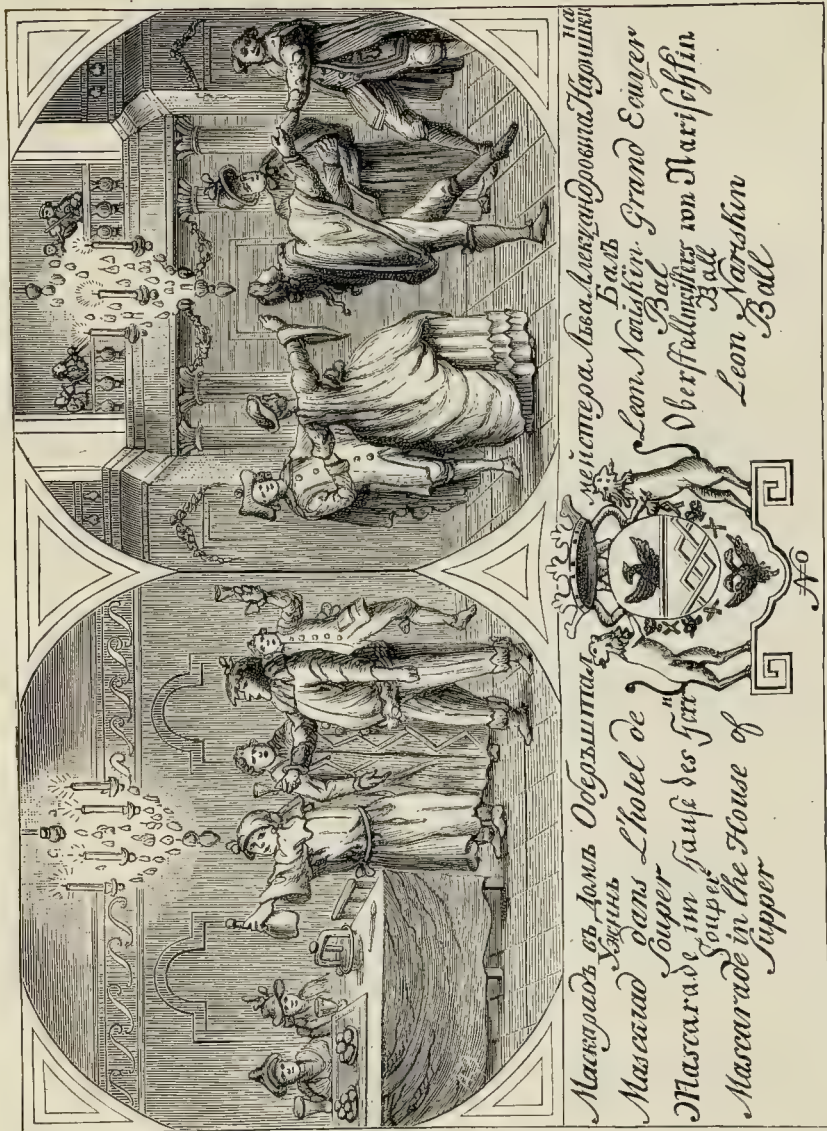 на
Маскарадъ въ Домѣ Оберъштал мейстера Льва Александровича Нарышки
Ужинъ Балъ
Mascarad dans L'hotel de Leon Nariskin Grand Ecuyer
Souper Bal
Mascarade im Hause des Herr Oberstallmeisters von Narischkin
Soupee Ball
Mascarade in the House of Leon Nariskin
Supper Ball
No